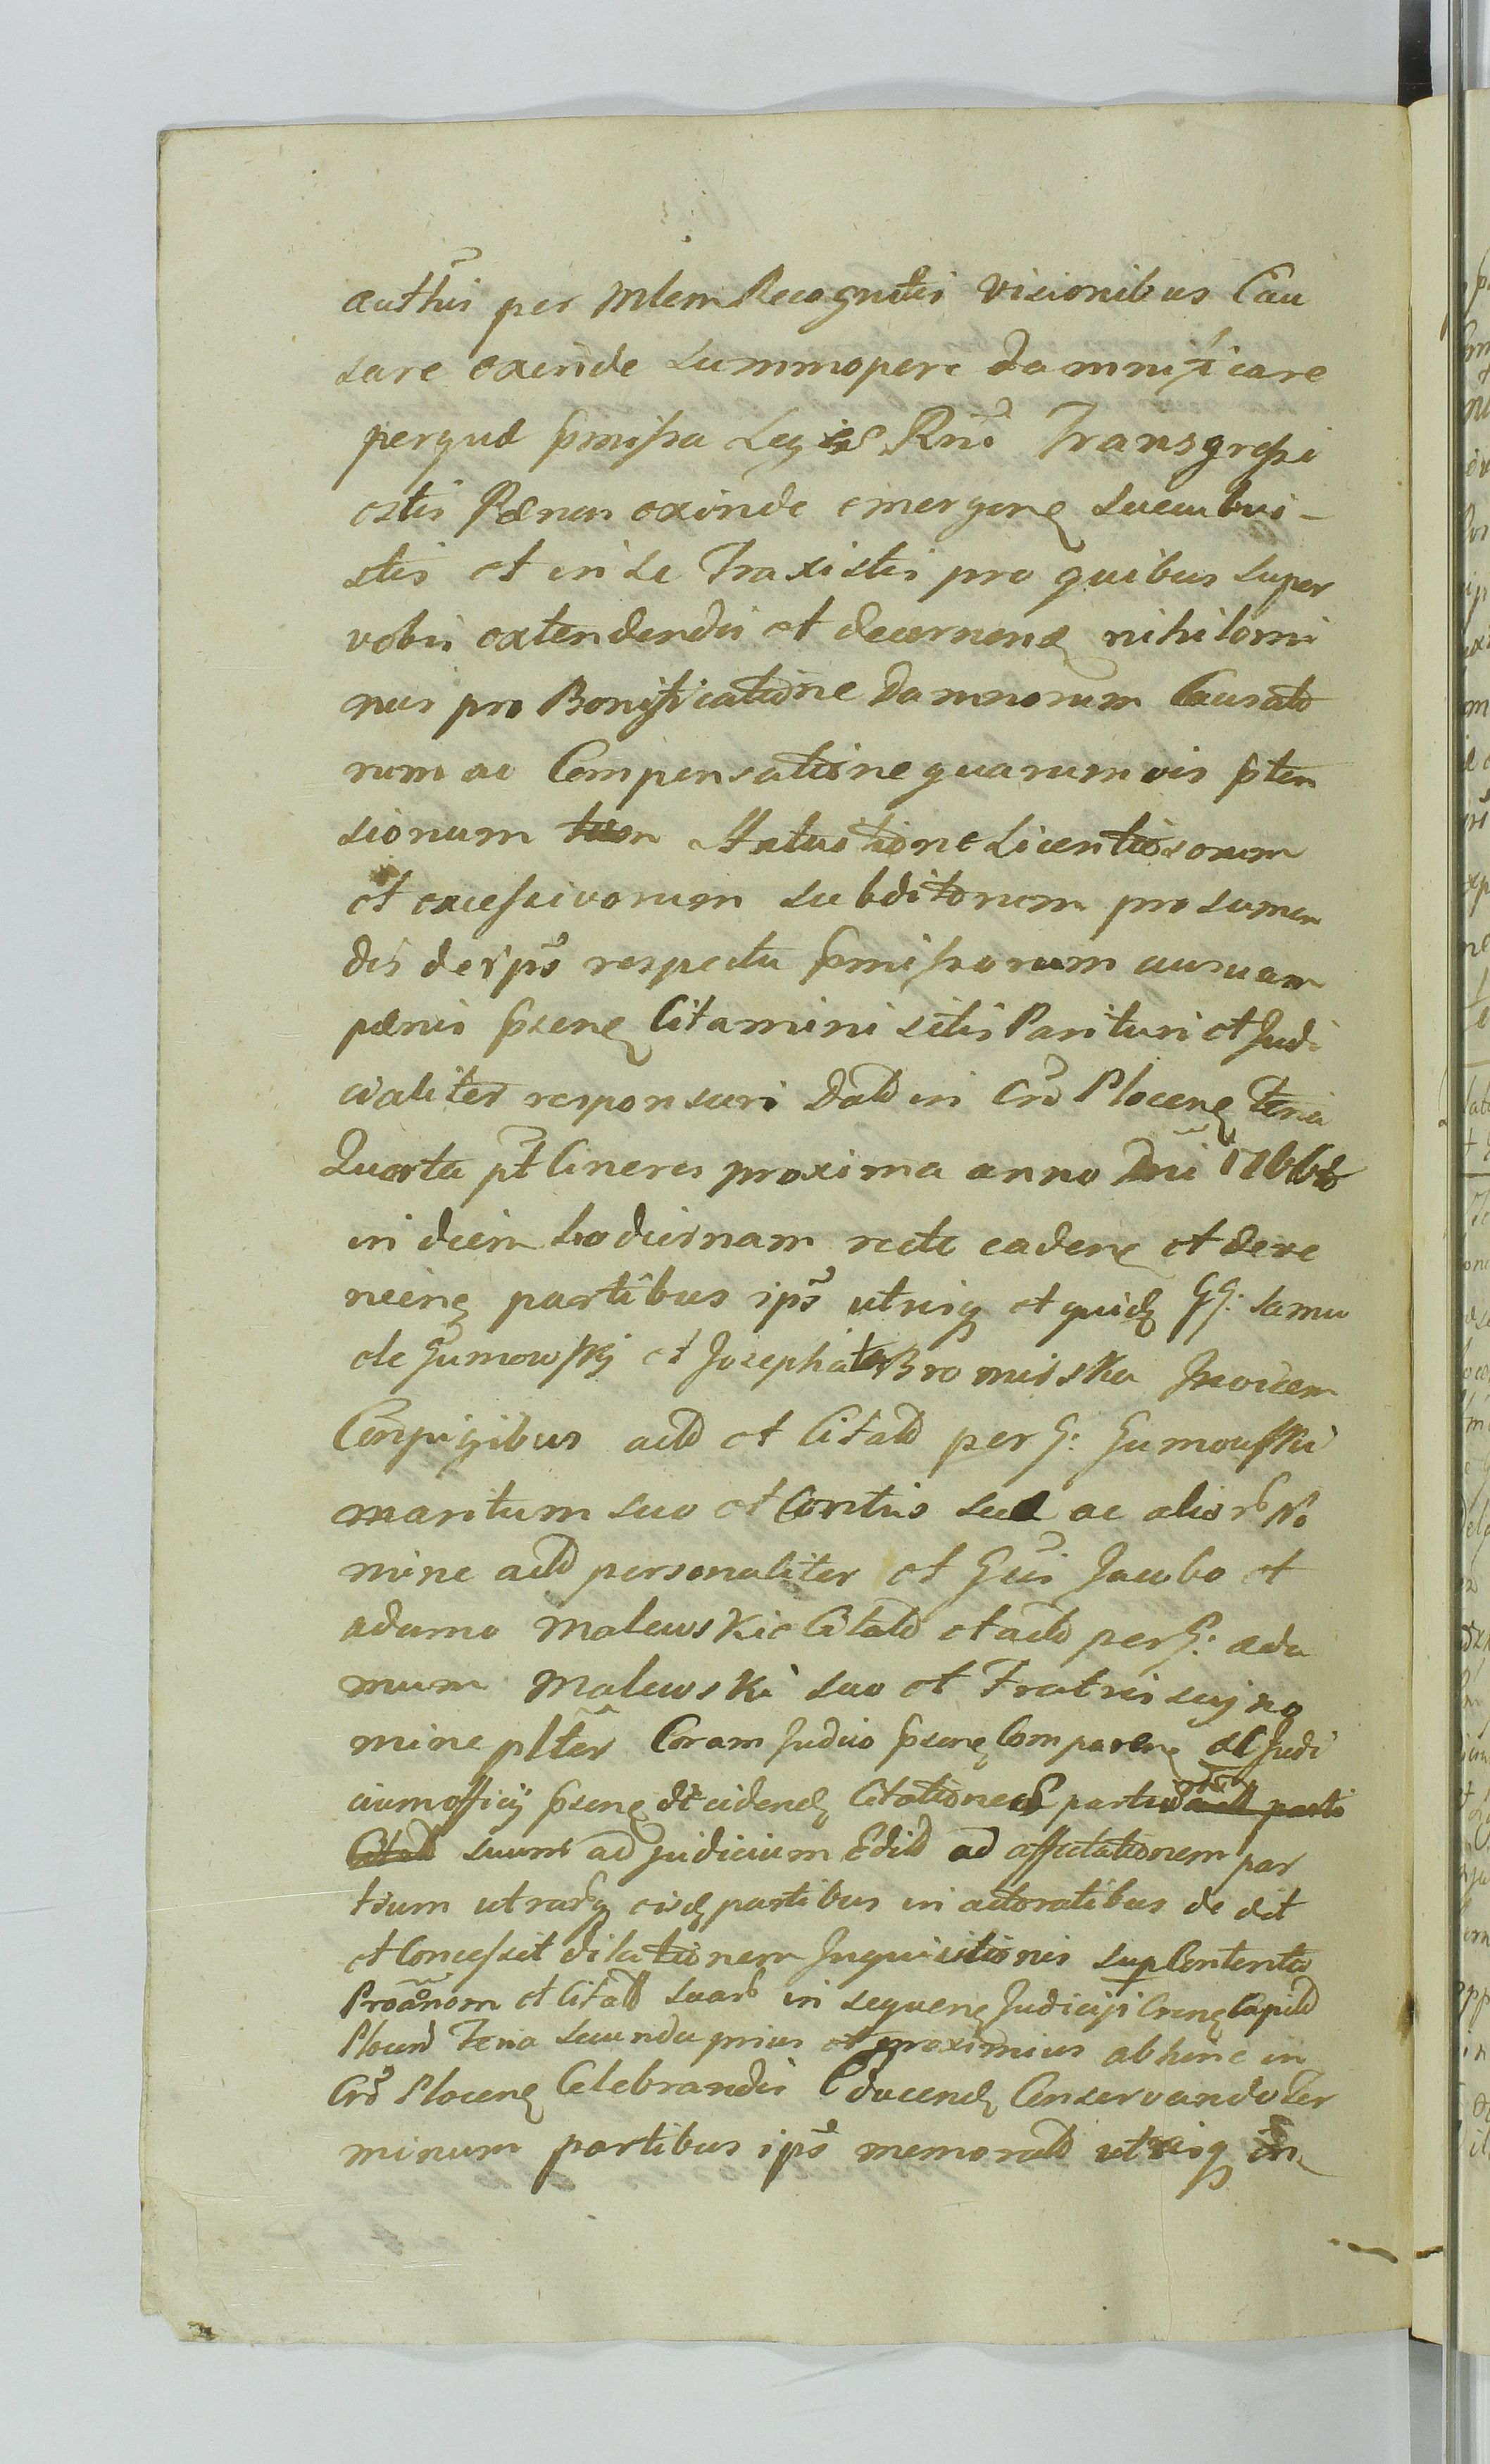 authis per Mlem Recognitis Visionibus Cau
sare exinde summopere Damnificare
perque pmissa Leges Rni Transgressi
estis Pænas exinde emergen succubui-
stis et in se Traxistis pro quibus super
vobis extendendis et decernend nihilomi
nus pro Bonificatione Damnorum Causato
rum ac Compensatione quarumvis pten
sionum Statuitione Licentiosorum
et excessivorum subditorum pro sumen
dis de ips respectu pmissorum
pænis psens Citamini sitis Parituri et Judi
cialiter responsuri Datt in Cro Plocen feria
Quarta pt Cineres proxima anno Dni
in diem hodiernam recte caden et deve
nien partibus ips utrisq et quid GG: Samu
ele Gumowski et Josephata Bromirska Invicem
Conjugibus actt et Citatt per G: Gumowski
maritum suo et Contis suæ ac alior No
mine actt personaliter et Gsis Jacobo et
adamo Malewskie Citatt et actt per G: ada
mum Malewski suo et Fratris suj no
mine plter Coram Judicio psen Comparen et Judi
cium officij psens decidend Citationes partis
suum ad Judicium Edit ad affectationem par
tium utrarq eisd partibus in actoratibus dedit
et Concessit dilationem Inquisitionis sup Contentis
Proanom et Citatt suar in sequen Judicijs Cren Capitt
Plocen Feria secunda prius et proximius abhinc in
Cro Plocen Celebrandis Educend Conservando ter
minum partibus ips memoratt utrisq in